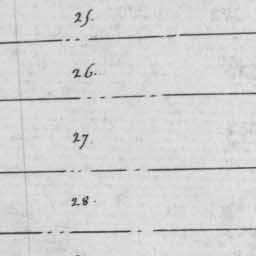 25.
26.
27.
28.